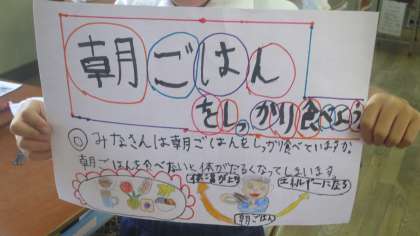 朝ごはん
をしっかり食べよう
◎みなさんは朝ごはんをしっかり食べていますか。
朝ごはんを食べないと体がだるくなってしまいます。
体温が上がる
エネルギーになる
朝ごはん